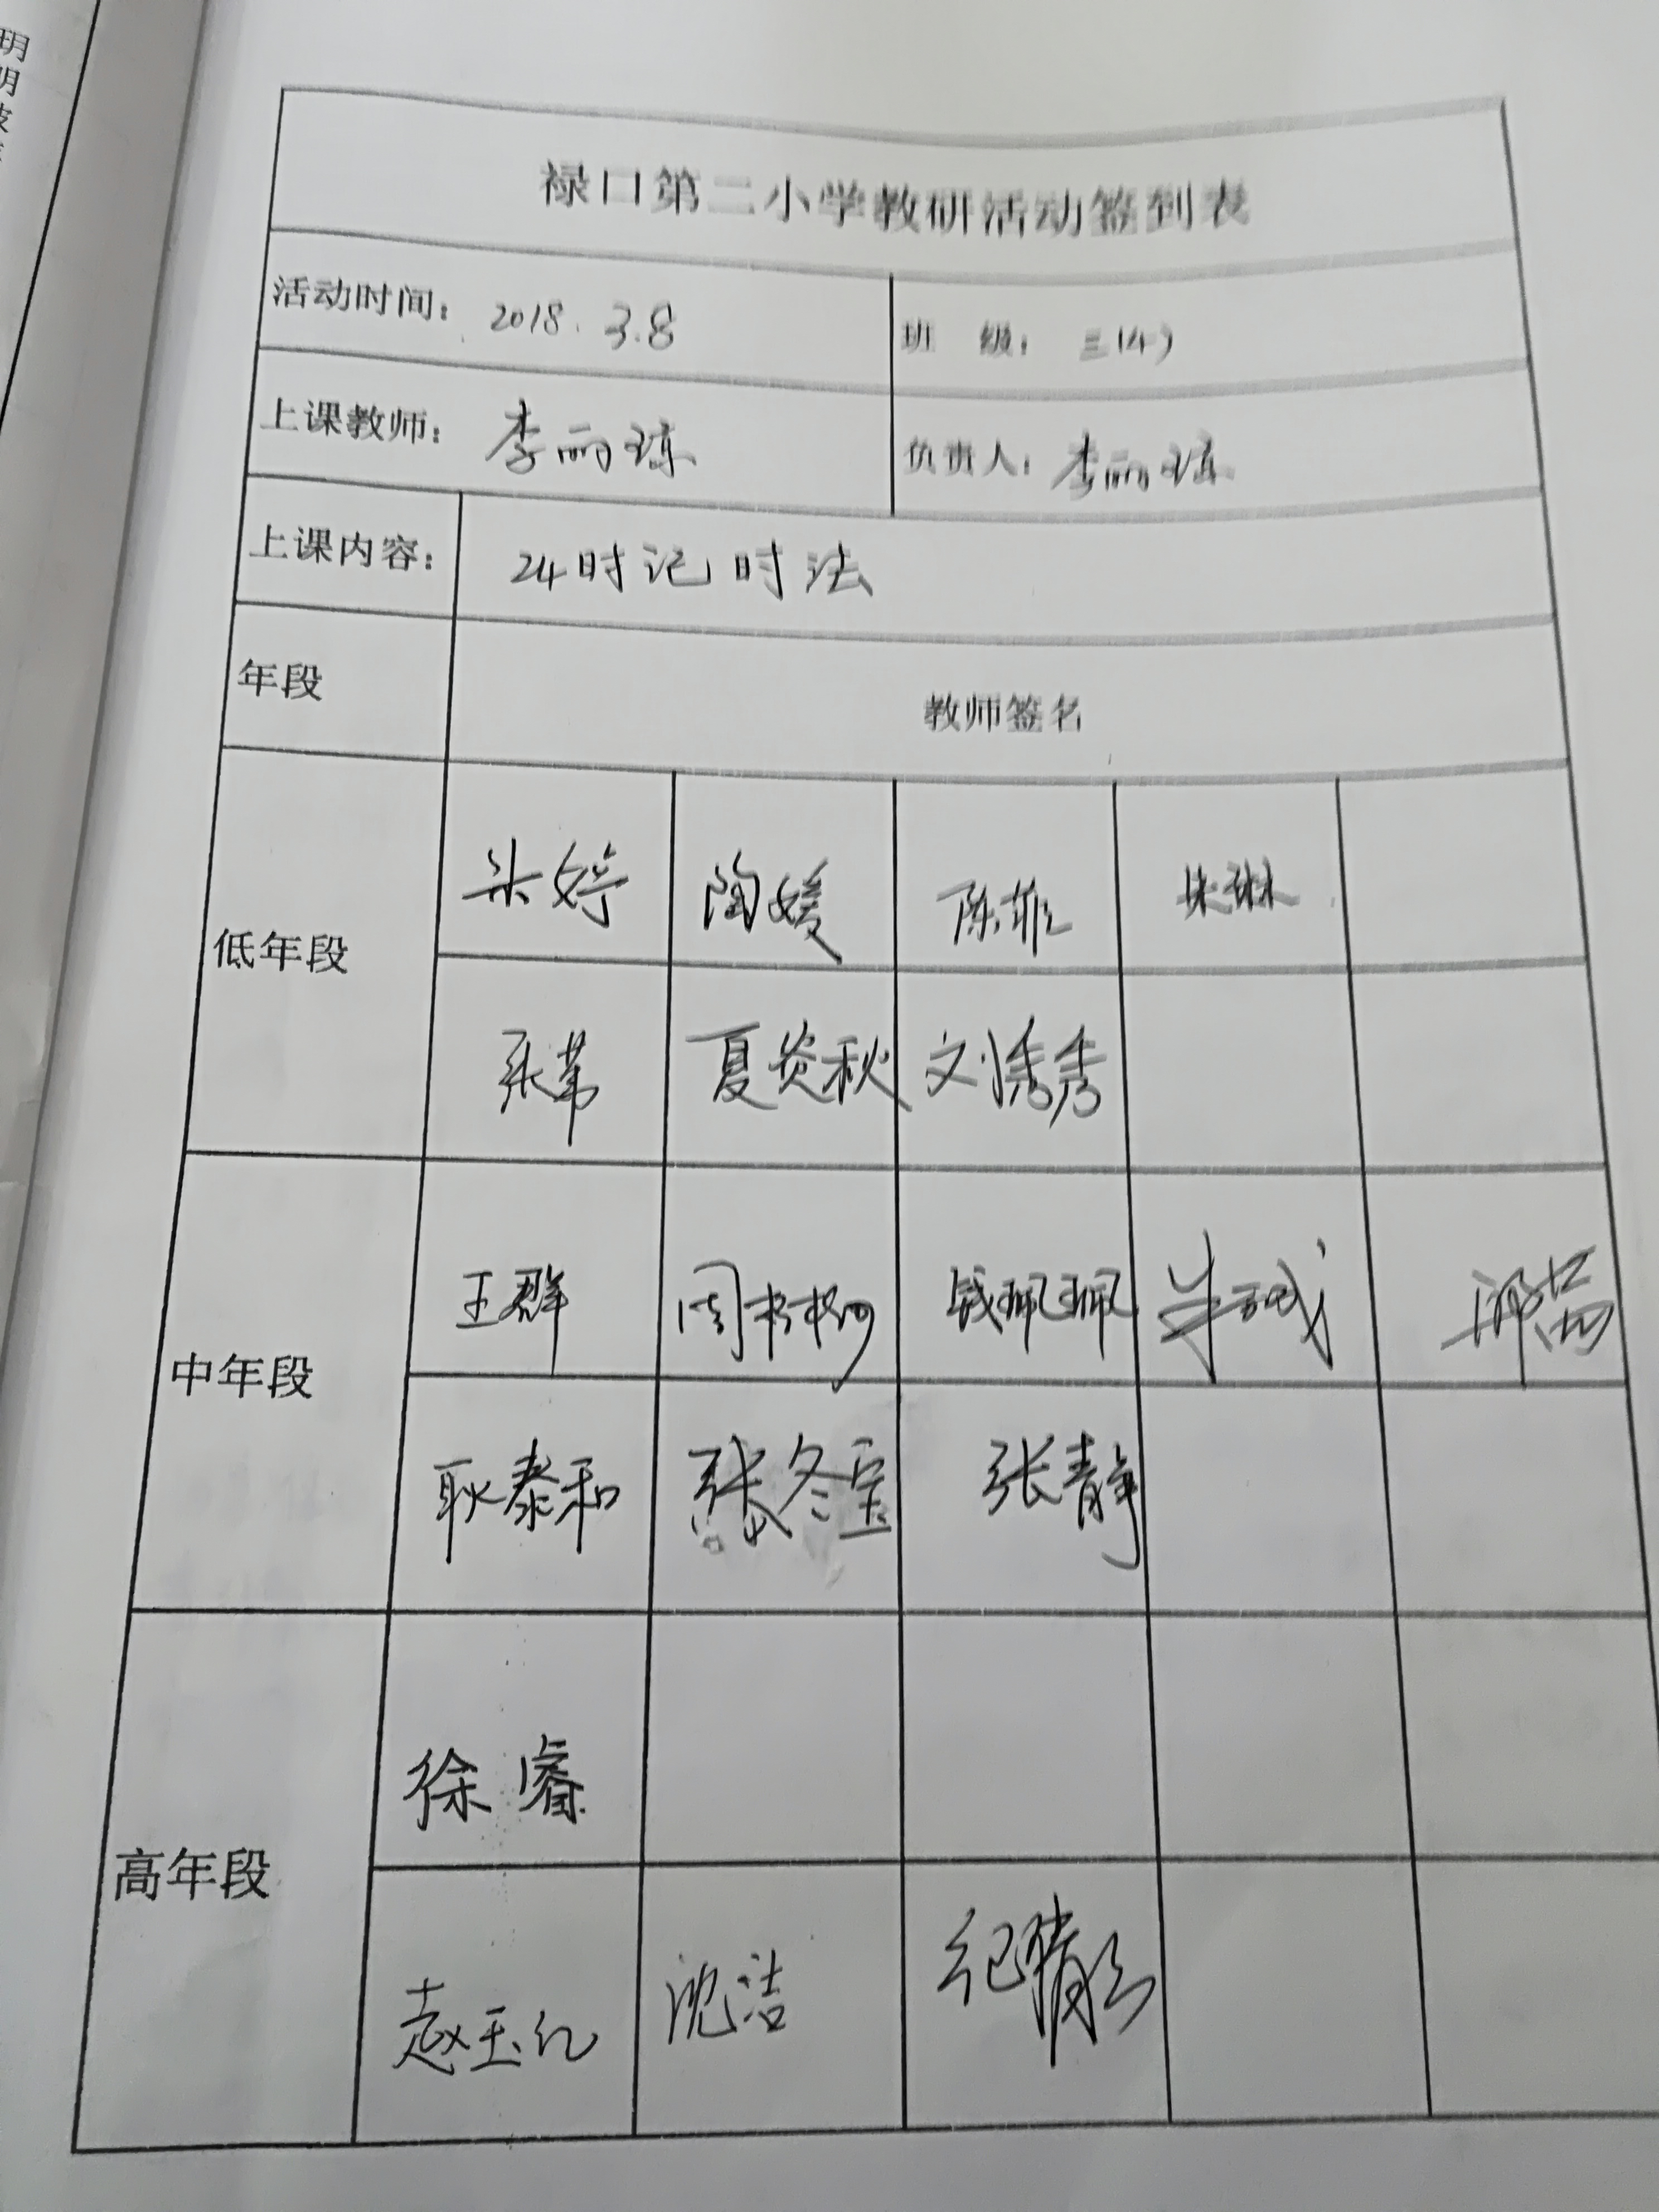 禄口第二小学教研活动签到表
活动时间： 2018.3.8 班 级： 三(4)
上课教师： 李丽琼 负责人： 李丽琼
上课内容： 24时记时法
年段 教师签名
低年段
朱婷 陶媛 陈菲 朱琳
张苇 夏炎秋
中年段
王群 钱珮珮
耿泰和 张冬宝 张静
高年段
徐睿
赵玉红 沈洁